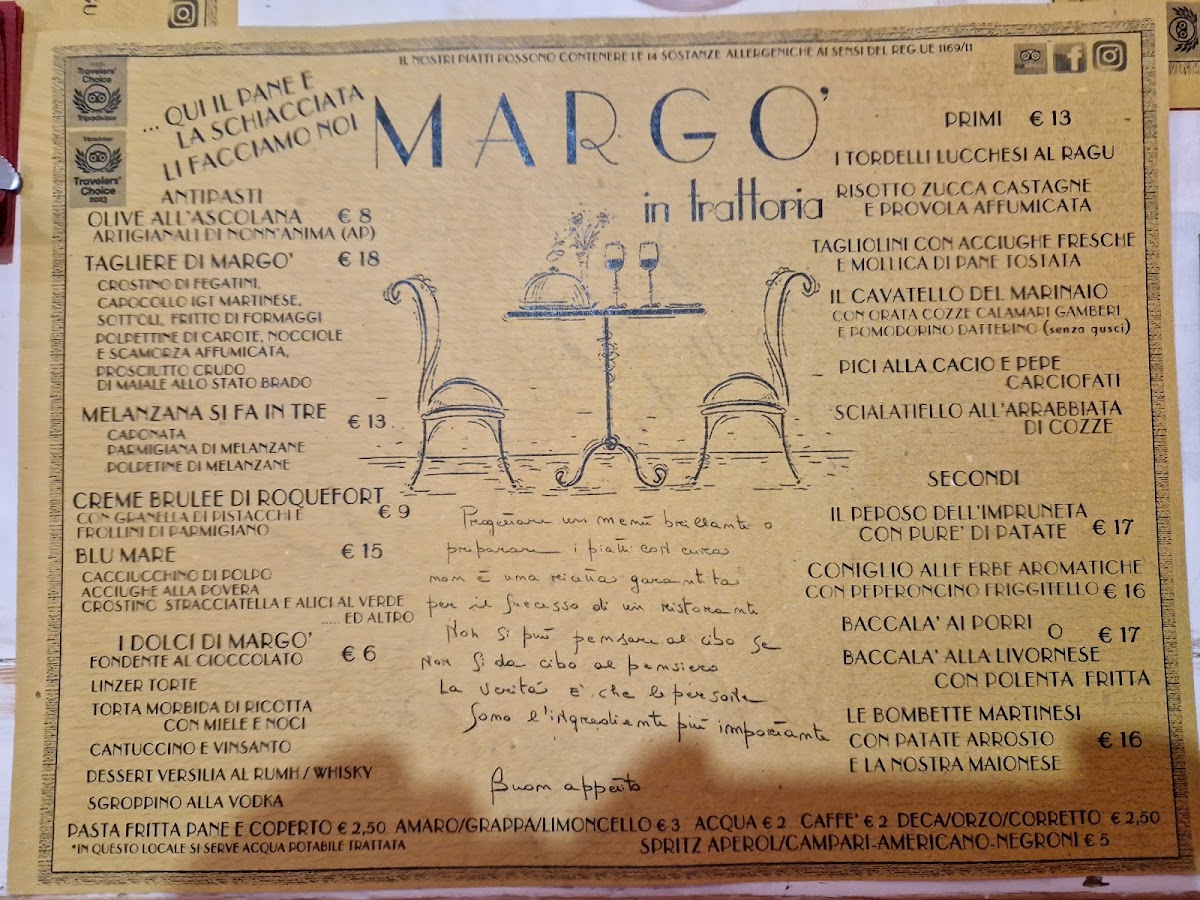 IL NOSTRI PIATTI POSSONO CONTENERE LE 14 SOSTANZE ALLERGENICHE AI SENSI DEL REG.UE 1169/11
Travelers'
Choice
Tripadvisor
Tripadvisor
Travelers'
Choice
2023
... QUI IL PANE E
LA SCHIACCIATA
LI FACCIAMO NOI
MARGO'
in trattoria
ANTIPASTI
OLIVE ALL'ASCOLANA € 8
ARTIGIANALI DI NONN'ANIMA (AP)
TAGLIERE DI MARGO' € 18
CROSTINO DI FEGATINI,
CAPOCOLLO IGT MARTINESE,
SOTT'OLI, FRITTO DI FORMAGGI
POLPETTINE DI CAROTE, NOCCIOLE
E SCAMORZA AFFUMICATA,
PROSCIUTTO CRUDO
DI MAIALE ALLO STATO BRADO
MELANZANA SI FA IN TRE € 13
CAPONATA
PARMIGIANA DI MELANZANE
POLPETINE DI MELANZANE
CREME BRULEE DI ROQUEFORT € 9
CON GRANELLA DI PISTACCHI E
FROLLINI DI PARMIGIANO
BLU MARE € 15
CACCIUCCHINO DI POLPO
ACCIUGHE ALLA POVERA
CROSTINO STRACCIATELLA E ALICI AL VERDE
..... ED ALTRO
I DOLCI DI MARGO' € 6
FONDENTE AL CIOCCOLATO
LINZER TORTE
TORTA MORBIDA DI RICOTTA
CON MIELE E NOCI
CANTUCCINO E VINSANTO
DESSERT VERSILIA AL RUMH / WHISKY
SGROPPINO ALLA VODKA
Progettare un menù brillante o
preparare i piatti con cura
non è una ricetta garantita
per il successo di un ristorante
Non si può pensare al cibo se
Non si da cibo al pensiero
La verità è che le persone
sono l'ingrediente più importante
Buon appetito
PRIMI € 13
I TORDELLI LUCCHESI AL RAGU
RISOTTO ZUCCA CASTAGNE
E PROVOLA AFFUMICATA
TAGLIOLINI CON ACCIUGHE FRESCHE
E MOLLICA DI PANE TOSTATA
IL CAVATELLO DEL MARINAIO
CON ORATA COZZE CALAMARI GAMBERI
E POMODORINO DATTERINO (senza gusci)
PICI ALLA CACIO E PEPE
CARCIOFATI
SCIALATIELLO ALL'ARRABBIATA
DI COZZE
SECONDI
IL PEPOSO DELL'IMPRUNETA
CON PURE' DI PATATE € 17
CONIGLIO ALLE ERBE AROMATICHE
CON PEPERONCINO FRIGGITELLO € 16
BACCALA' AI PORRI O € 17
BACCALA' ALLA LIVORNESE
CON POLENTA FRITTA
LE BOMBETTE MARTINESI
CON PATATE ARROSTO € 16
E LA NOSTRA MAIONESE
PASTA FRITTA PANE E COPERTO € 2,50 AMARO/GRAPPA/LIMONCELLO € 3 ACQUA € 2 CAFFE' € 2 DECA/ORZO/CORRETTO € 2,50
*IN QUESTO LOCALE SI SERVE ACQUA POTABILE TRATTATA
SPRITZ APEROL/CAMPARI-AMERICANO-NEGRONI € 5